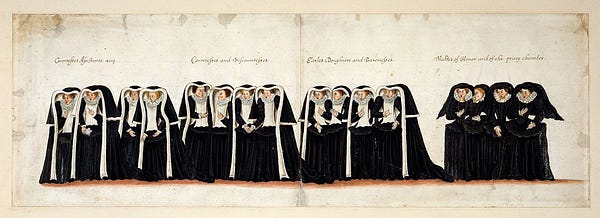 Countesses Assistants.
Countesses and Viscountesses
Earles Daughters and Baronesses
Maides of Honor and of the privy chamber.